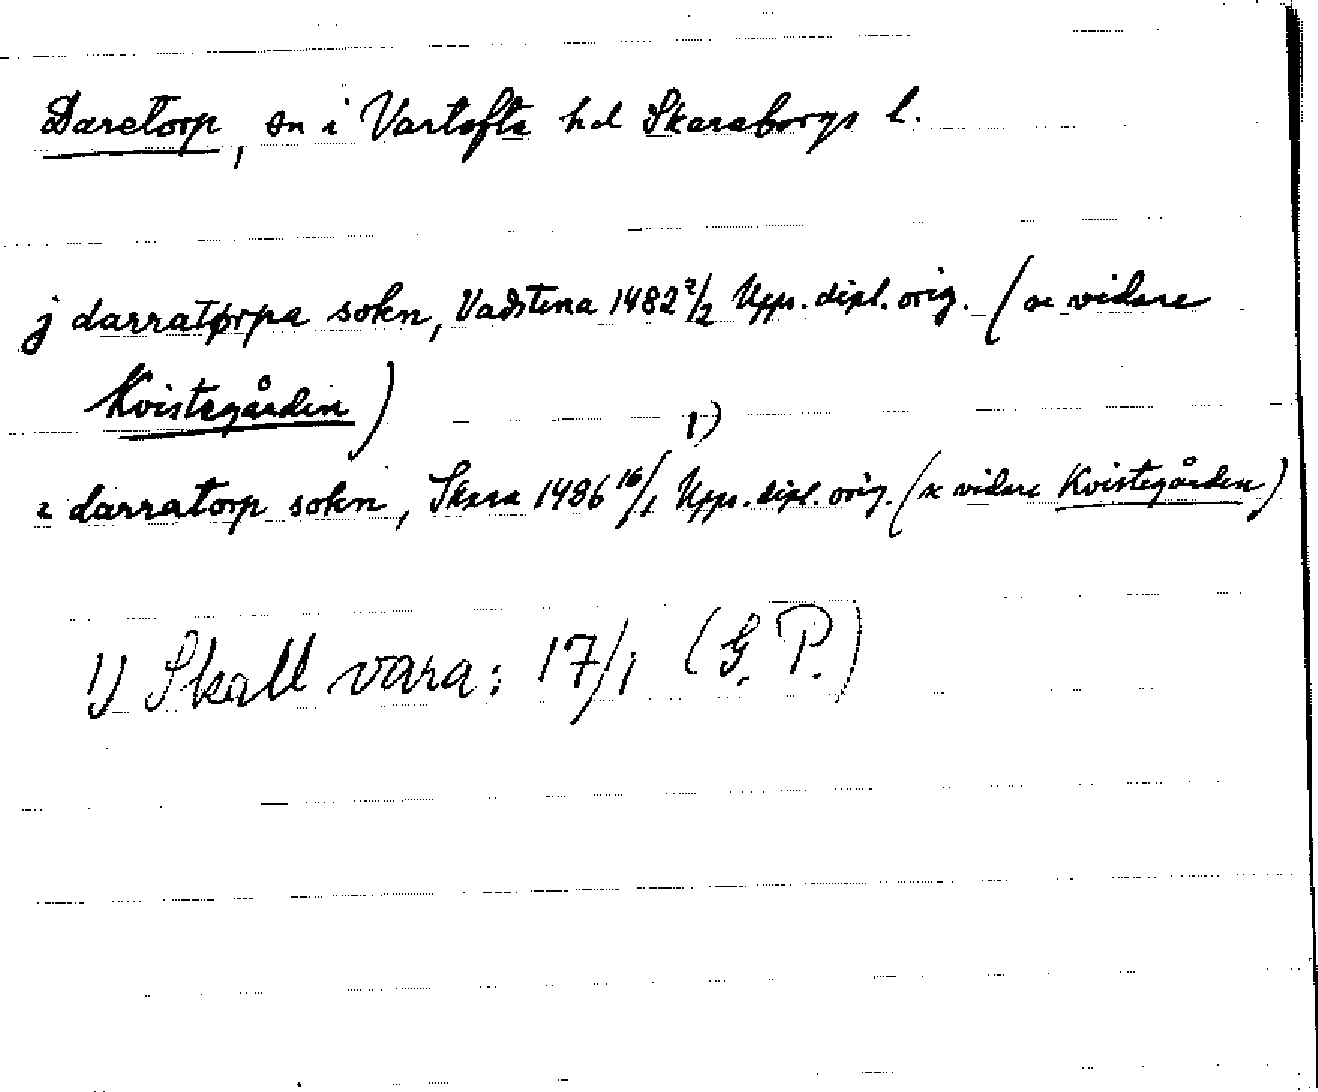 Daretorp, sn i Vartofta hd Skaraborgs l.
j darratørpa sokn, Vadstena 1482 2/2 Upps. dipl. orig. (se vidare
Kvistegården)
1)
i darratorp sokn, Skara 1486 16/1 Upps. dipl. orig. (se vidare Kvistegården)
1) Skall vara: 17/1 (G. P.)